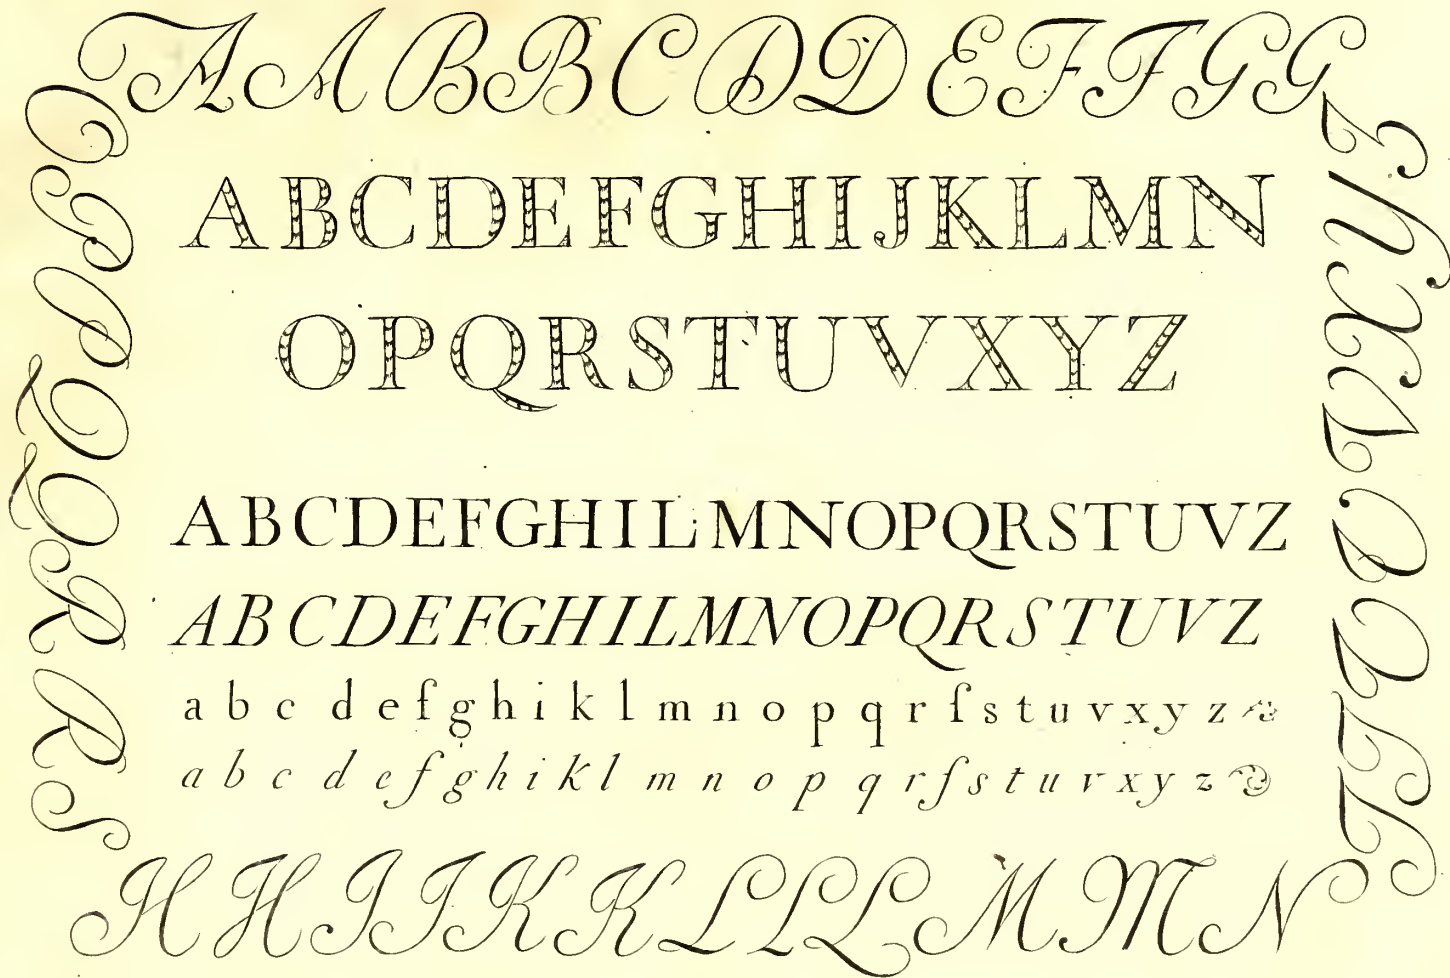 A A B B C D D E F F G G
A B C D E F G H I J K L M N
O P Q R S T U V X Y Z
A B C D E F G H I L M N O P Q R S T U V Z
A B C D E F G H I L M N O P Q R S T U V Z
a b c d e f g h i k l m n o p q r ſ s t u v x y z &
a b c d e f g h i k l m n o p q r ſ s t u v x y z &
H H I I K K L L L M M N
O P P Q Q R R S
T T V V V X Y Z